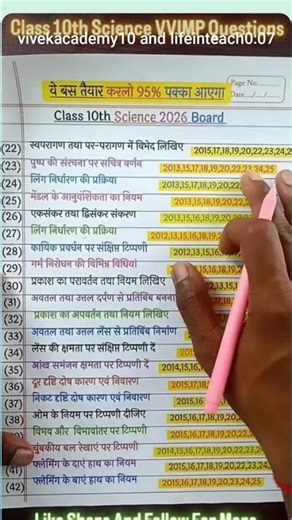 Class 10th Science VVIMP Questions
vivekacademy10 and lifeinteach0.07
ये बस तैयार करलो 95% पक्का आएगा
Page No.
Date
Class 10th Science 2026 Board
(22) स्वपरागण तथा पर-परागण में विभेद लिखिए 2015,17,18,19,20,22,23,24,25
(23) पुष्प की संरचना पर सचित्र वर्णन 2013,15,17,18,19,20,22,23,24,25
(24) लिंग निर्धारण की प्रक्रिया 2013,15,17,18,19,20,22,
(25) मेंडल के आनुवंशिकता का नियम 2013,15,16,18,19,20,22,23
(26) एकसंकर तथा द्विसंकर संकरण 2013,15,16,18,19,20,22,
(27) लिंग निर्धारण की प्रक्रिया 2012,13,15,16,18,19,
(28) कायिक प्रवर्धन पर संक्षिप्त टिप्पणी 2012,13,15,16,
(29) गर्भ निरोधन की विभिन्न विधियां 15,16,18,19,
(30) प्रकाश का परावर्तन तथा नियम लिखिए
(31) अवतल तथा उत्तल दर्पण से प्रतिबिंब बनना
(32) प्रकाश का अपवर्तन तथा नियम लिखिए
(33) अवतल तथा उत्तल लेंस से प्रतिबिंब निर्माण
(34) लेंस की क्षमता पर संक्षिप्त टिप्पणी दें 2015,
(35) आंख समंजन क्षमता पर टिप्पणी दें 2014,15,16,
(36) दूर दृष्टि दोष कारण एवं निवारण 2015,17,18,
(37) निकट दृष्टि दोष कारण एवं निवारण 2015,16,
(38) ओम के नियम पर टिप्पणी दीजिए 2015,16,17,18,19,20,22,
विभव और विभवांतर पर टिप्पणी 2015,16,17,18,19,20,22,
चुंबकीय बल रेखाएं पर टिप्पणी 2014,15,16,17,18,19,20,
(41) फ्लेमिंग के दाएं हाथ का नियम 2015,16,17,18,19,20,22,
(42) फ्लेमिंग के बाएं हाथ का नियम 2015,16,17,18,19,20,22,23,24,25
Like Share And Follow For More